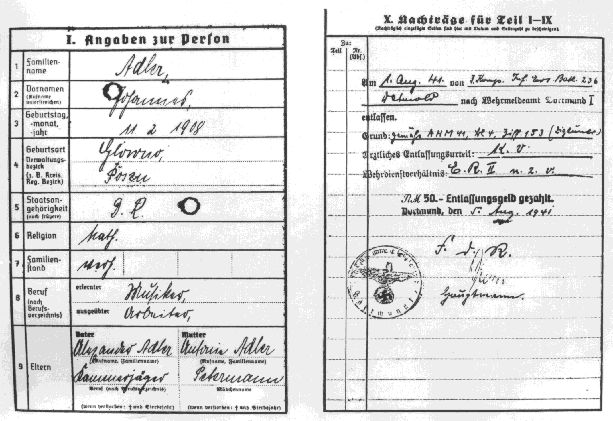 I. Angaben zur Person
1 Familien-
name
Adler,
2 Vornamen
(Rufname
unterstreichen)
Johannes,
3 Geburtstag,
-monat,
-jahr
11. 2 1908
4 Geburtsort
Verwaltungs-
bezirk
(z. B. Kreis,
Reg. Bezirk)
Glowno,
Posen
5 Staatsan-
gehörigkeit
(auch frühere)
D. R.
6 Religion
kath.
7 Familien-
stand
verh.
8 Beruf
(nach
Berufs-
verzeichnis)
erlernter
Musiker,
ausgeübter
Arbeiter,
9 Eltern
Vater
Alexander Adler
(Rufname, Familienname)
Kammerjäger
Beruf (nach Berufsverzeichnis)
(wenn verstorben: † und Sterbejahr)
Mutter
Antonie Adler
(Rufname, Familienname)
Petermann
Mädchenname
(wenn verstorben: † und Sterbejahr)
X. Nachträge für Teil I–IX
(Nachträglich eingefügte Seiten sind hier mit Datum und Seitenzahl zu bescheinigen).
Zu:
Teil Nr.
Am 5. Aug. 41 von
Detmold nach Wehrmeldeamt Dortmund I
entlassen.
Grund: gemäß
Ärztliches Entlassungsurteil: k. v.
Wehrdienstverhältnis: E. R. II n. z. v.
RM 50.- Entlassungsgeld gezahlt.
Dortmund, den 5. Aug. 1941
F. d. R.
Hauptmann.